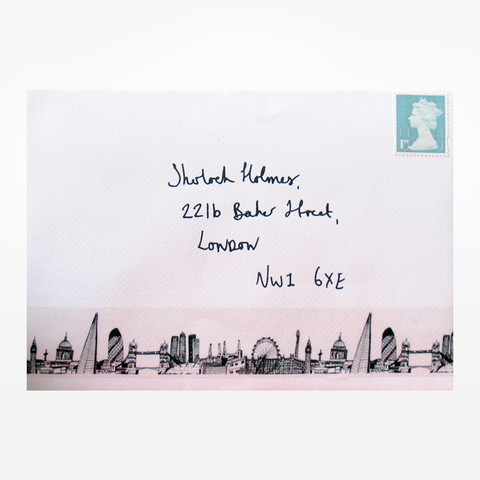 1st
Sherlock Holmes,
221b Baker Street,
LONDON
NW1 6XE